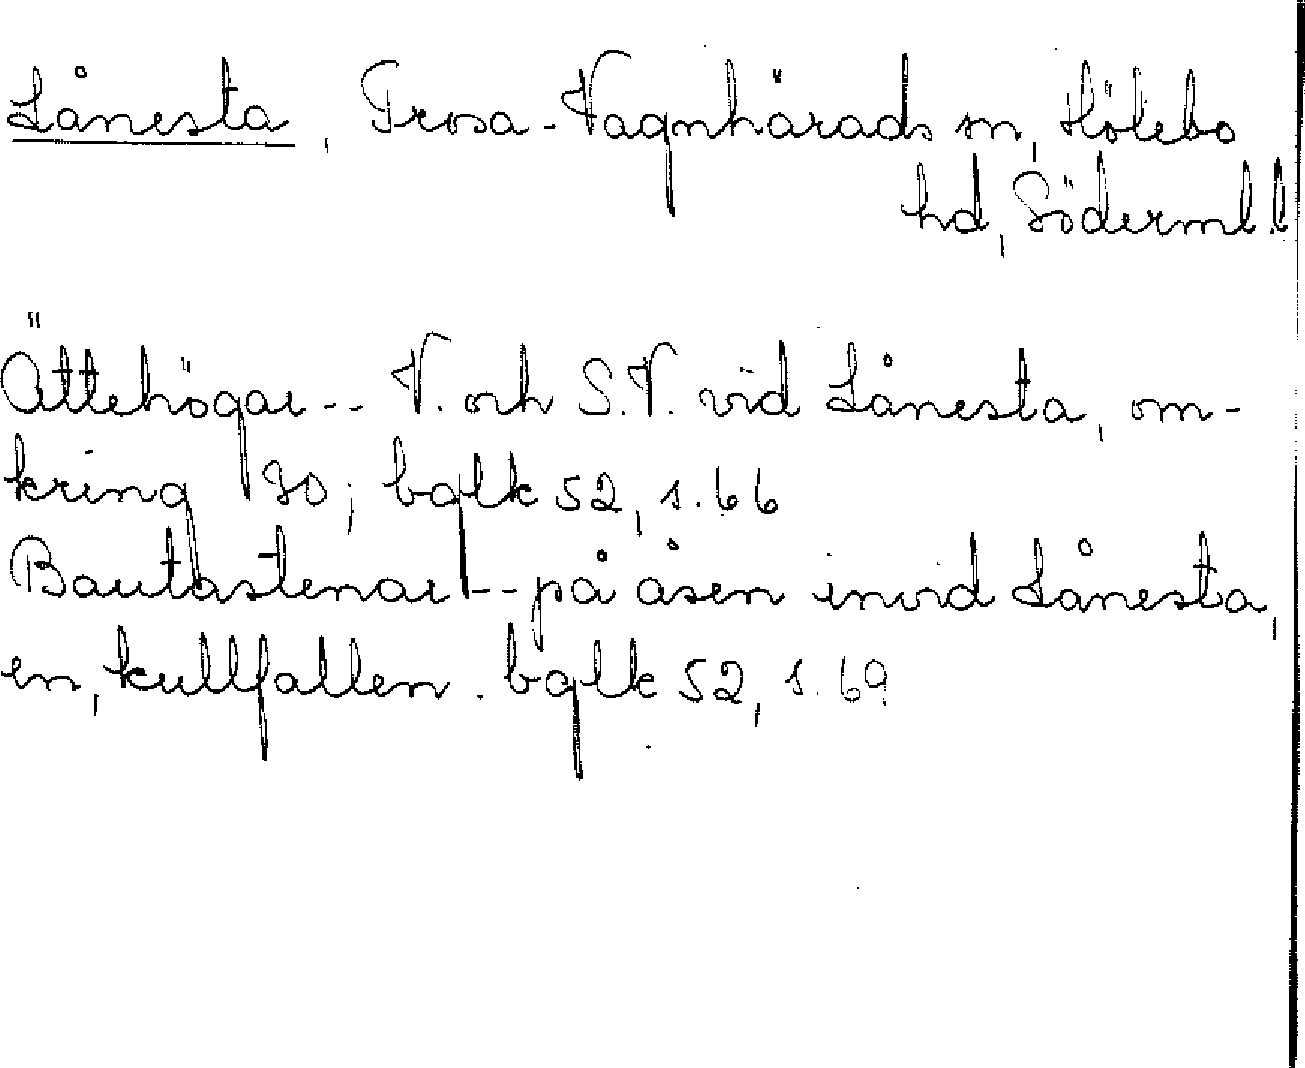 Lånesta, Trosa-Vagnhärads sn, Hölebo
hd, Söderml. l
Ättehögar -- V. och S.V. vid Lånesta, om-
kring 30; bglk 52, s. 66
Bautastenar -- på åsen invid Lånesta,
en, kullfallen. bglk 52, s. 69